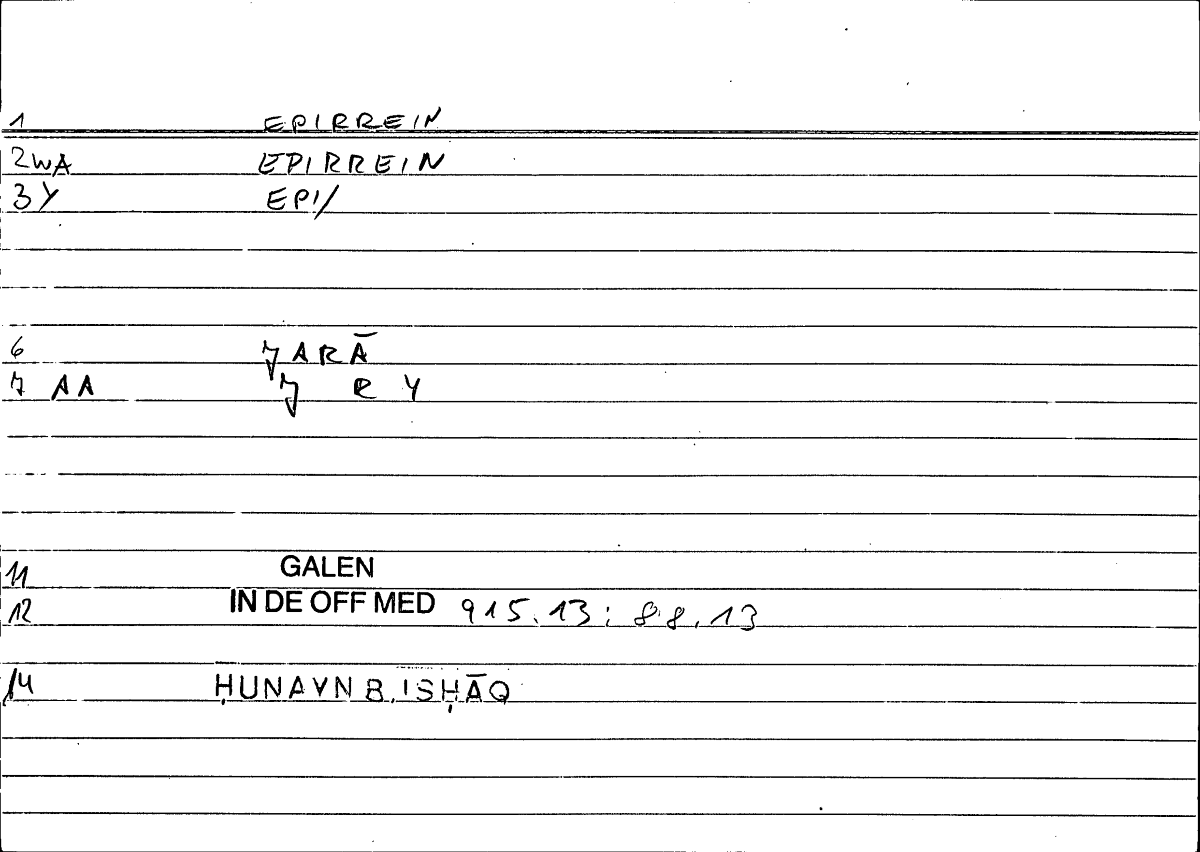 1 EPIRREIN
2WA EPIRREIN
3Y EPI/
6 ǦARĀ
7 AA Ǧ R Y
11 GALEN
12 IN DE OFF MED 915.13: 88.13
14 ḤUNAYN B. ISḤĀQ